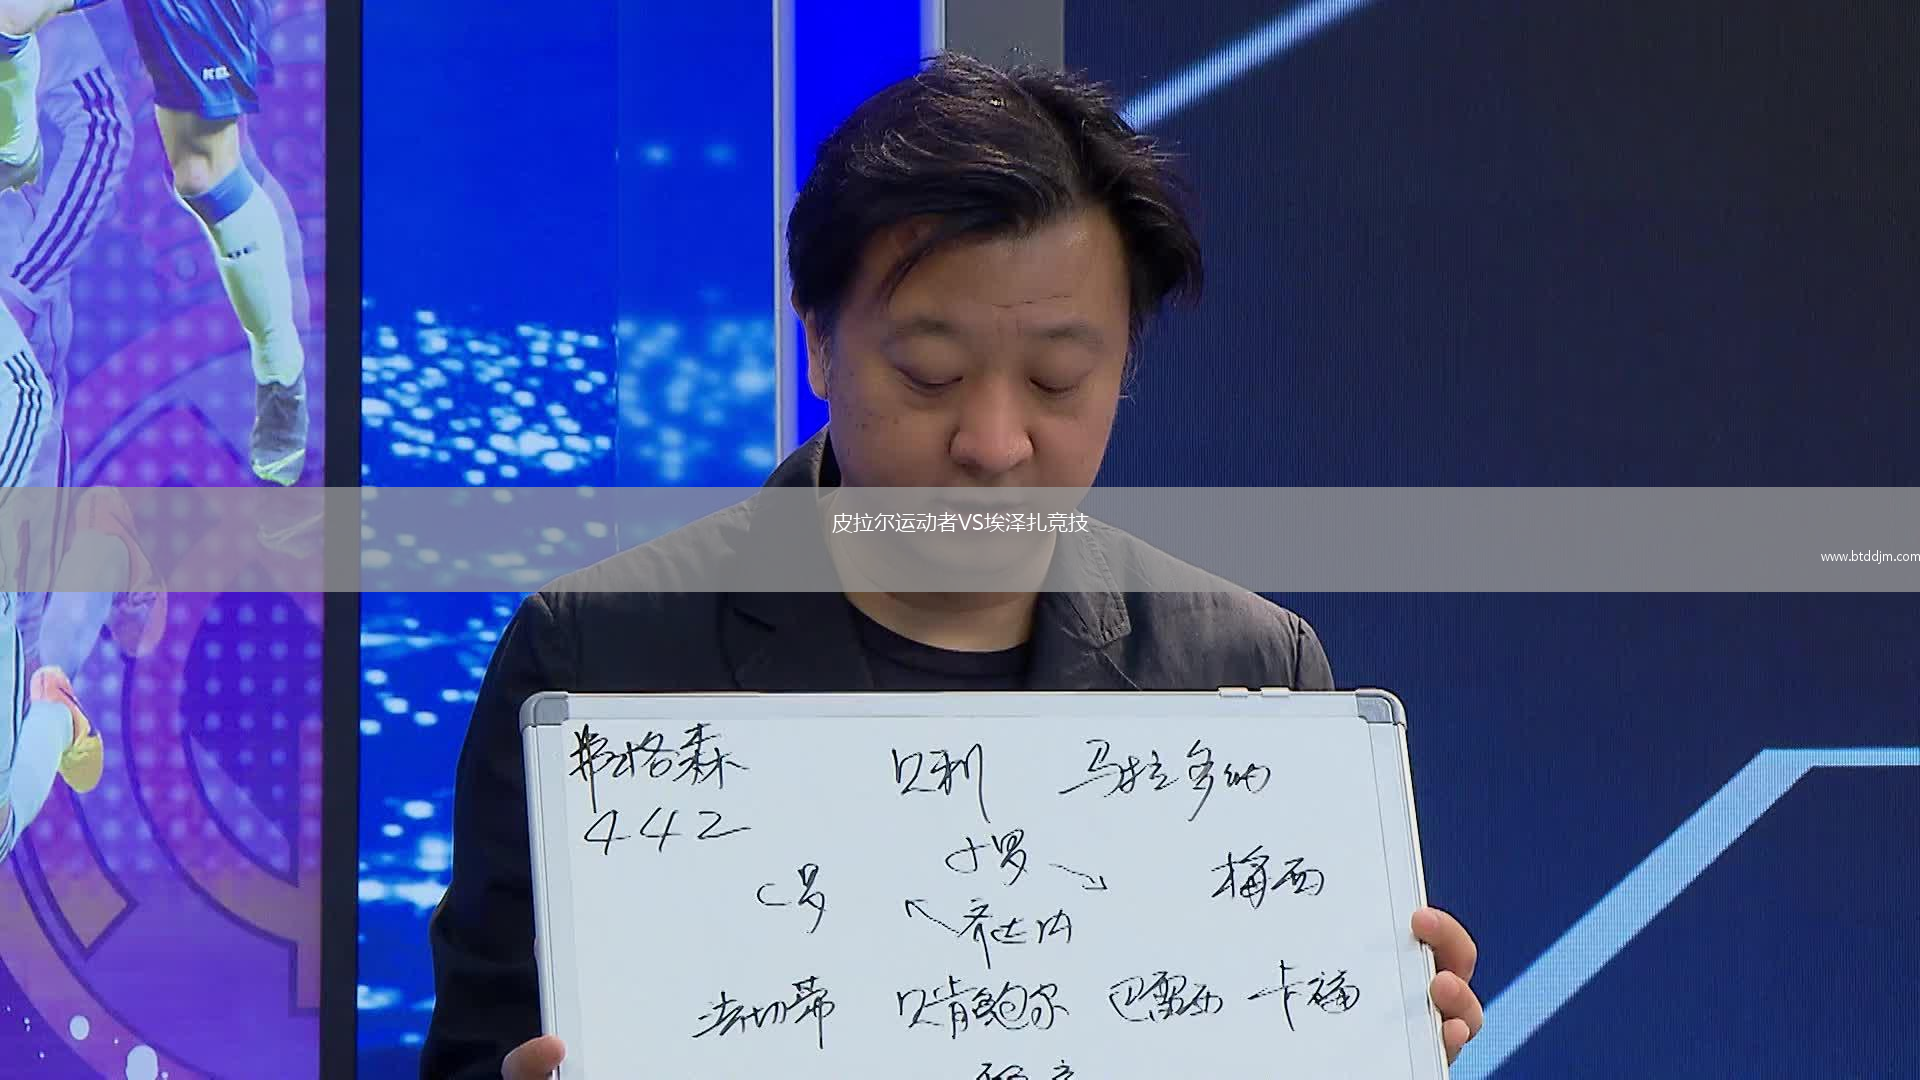 KELME
皮拉尔运动者VS埃泽扎竞技
www.btddjm.com
弗格森 贝利 马拉多纳
442
小罗
C罗 梅西
齐达内
法切蒂 贝肯鲍尔 巴雷西 卡福